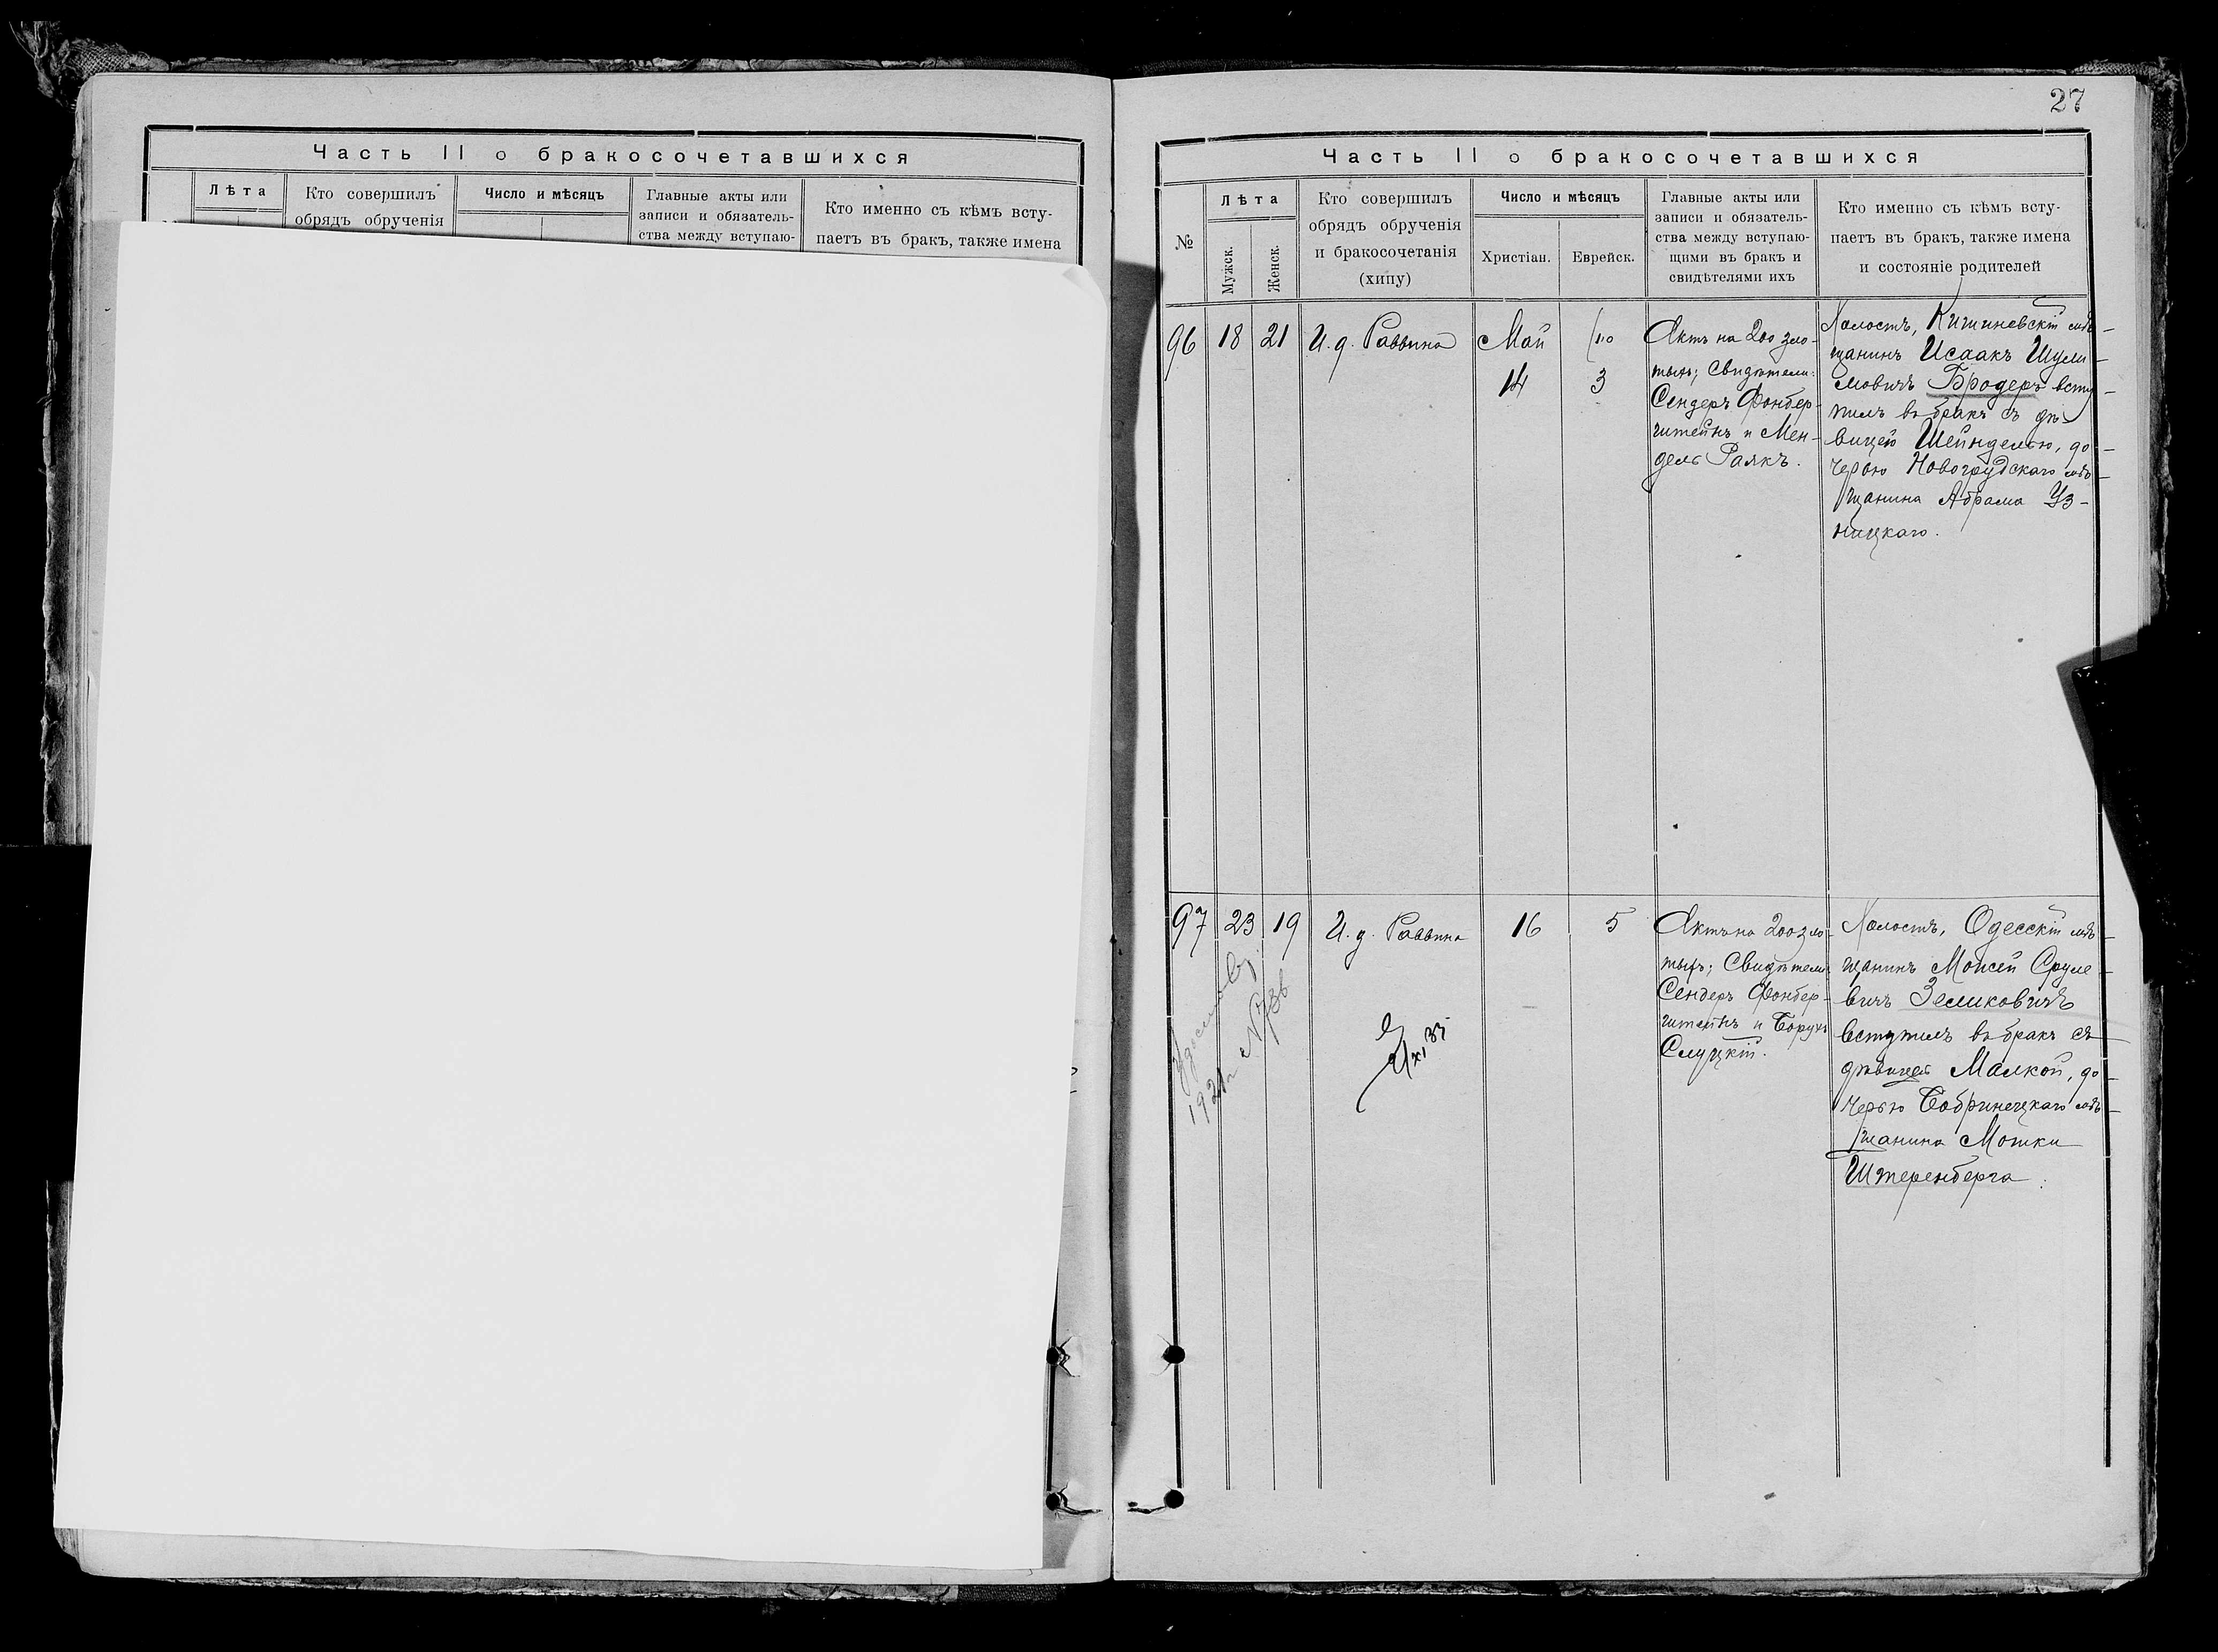 Часть II о бракосочетавшихся
Лѣта
Кто совершилъ
обрядъ обрученія
Число и мѣсяцъ
Главные акты или
записи и обязатель-
ства между вступаю-
Кто именно съ кѣмъ всту-
паетъ въ бракъ, также имена
27
Часть II о бракосочетавшихся
№
Лѣта
Мужск.
Женск.
Кто совершилъ
обрядъ обрученія
и бракосочетанія
(хипу)
Число и мѣсяцъ
Христіан.
Еврейск.
Главные акты или
записи и обязатель-
ства между вступаю-
щими въ бракъ и
свидѣтелями ихъ
Кто именно съ кѣмъ всту-
паетъ въ бракъ, также имена
и состояніе родителей
96
18
21
И. д. Раввина
Май
14
3
Актъ на 200 зло-
тыхъ; Свидѣтели:
Сендеръ Фонбер-
штейнъ и Мен-
дель Раякъ.
Холостъ, Кишиневскій мѣ-
щанинъ Исаакъ Шули-
мовичъ Бродеръ всту-
пилъ въ бракъ съ дѣ-
вицею Шейнделью, до-
черью Новогрудскаго мѣ-
щанина Абрама Уз-
ницкаго.
97
23
19
И. д. Раввина
16
5
Актъ на 200 зло-
тыхъ; Свидѣтели:
Сендеръ Фонбер-
штейнъ и Борухъ
Слуцкій.
Холостъ, Одесскій мѣ-
щанинъ Моисей Сруле-
вичъ Зеликовичъ
вступилъ въ бракъ съ
дѣвицей Малкой, до-
черью Бобринецкаго мѣ-
щанина Мошки
Штеренберга.